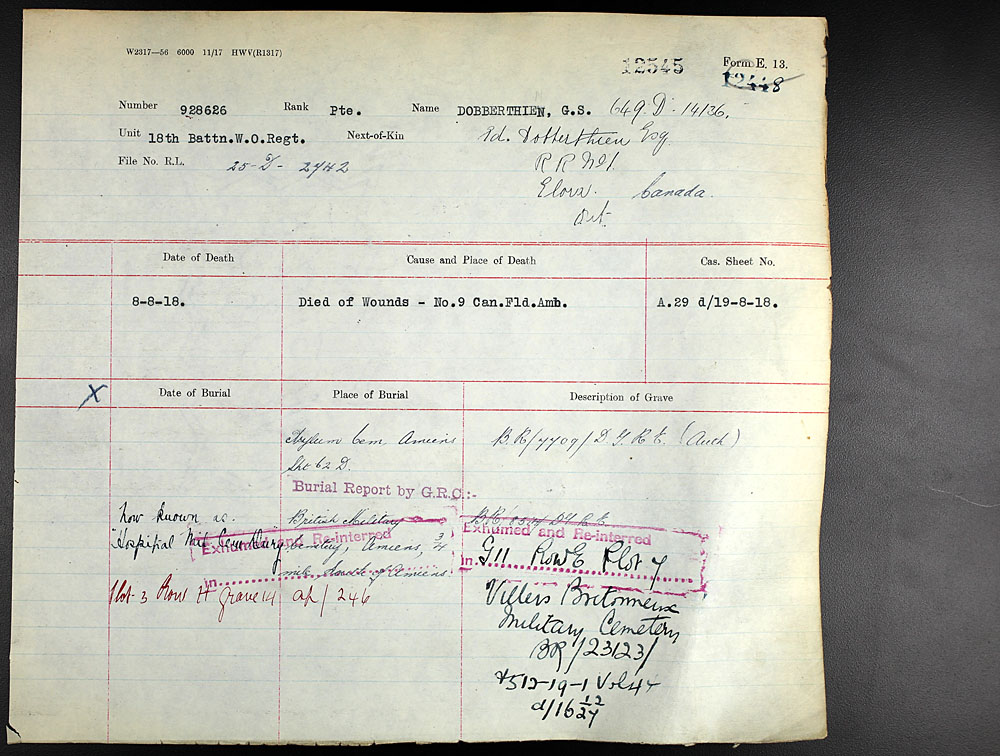 W2317—56 6000 11/17 HWV(R1317)
12545
Form E. 13.
12448
Number 928626 Rank Pte. Name DOBBERTHIEN, G.S. 649. D. 14136.
Unit 18th Battn.W.O.Regt. Next-of-Kin Ed. Dobberthien Esq
File No. R.L. 25-D- 2742
R R No1.
Elora. Canada.
Ont.
Date of Death Cause and Place of Death Cas. Sheet No.
8-8-18. Died of Wounds - No.9 Can.Fld.Amb. A.29 d/19-8-18.
X Date of Burial Place of Burial Description of Grave
Asylum Cem. Amiens B.R/7709/D.G.R.E. (Auth)
Sht 62 D.
Burial Report by G.R.C.:-
now known as British Military
"Hospital Mil Cemetery Cemetery, Amiens, 3/4
Exhumed and Re-interred
in
mile South of Amiens.
Plot 3 Row H grave 14 ap/246
Exhumed and Re-interred
in G11 Row E Plot 7
Villers Bretonneux
Military Cemetery
BR/23123/
Vol 44
d/16 12/27